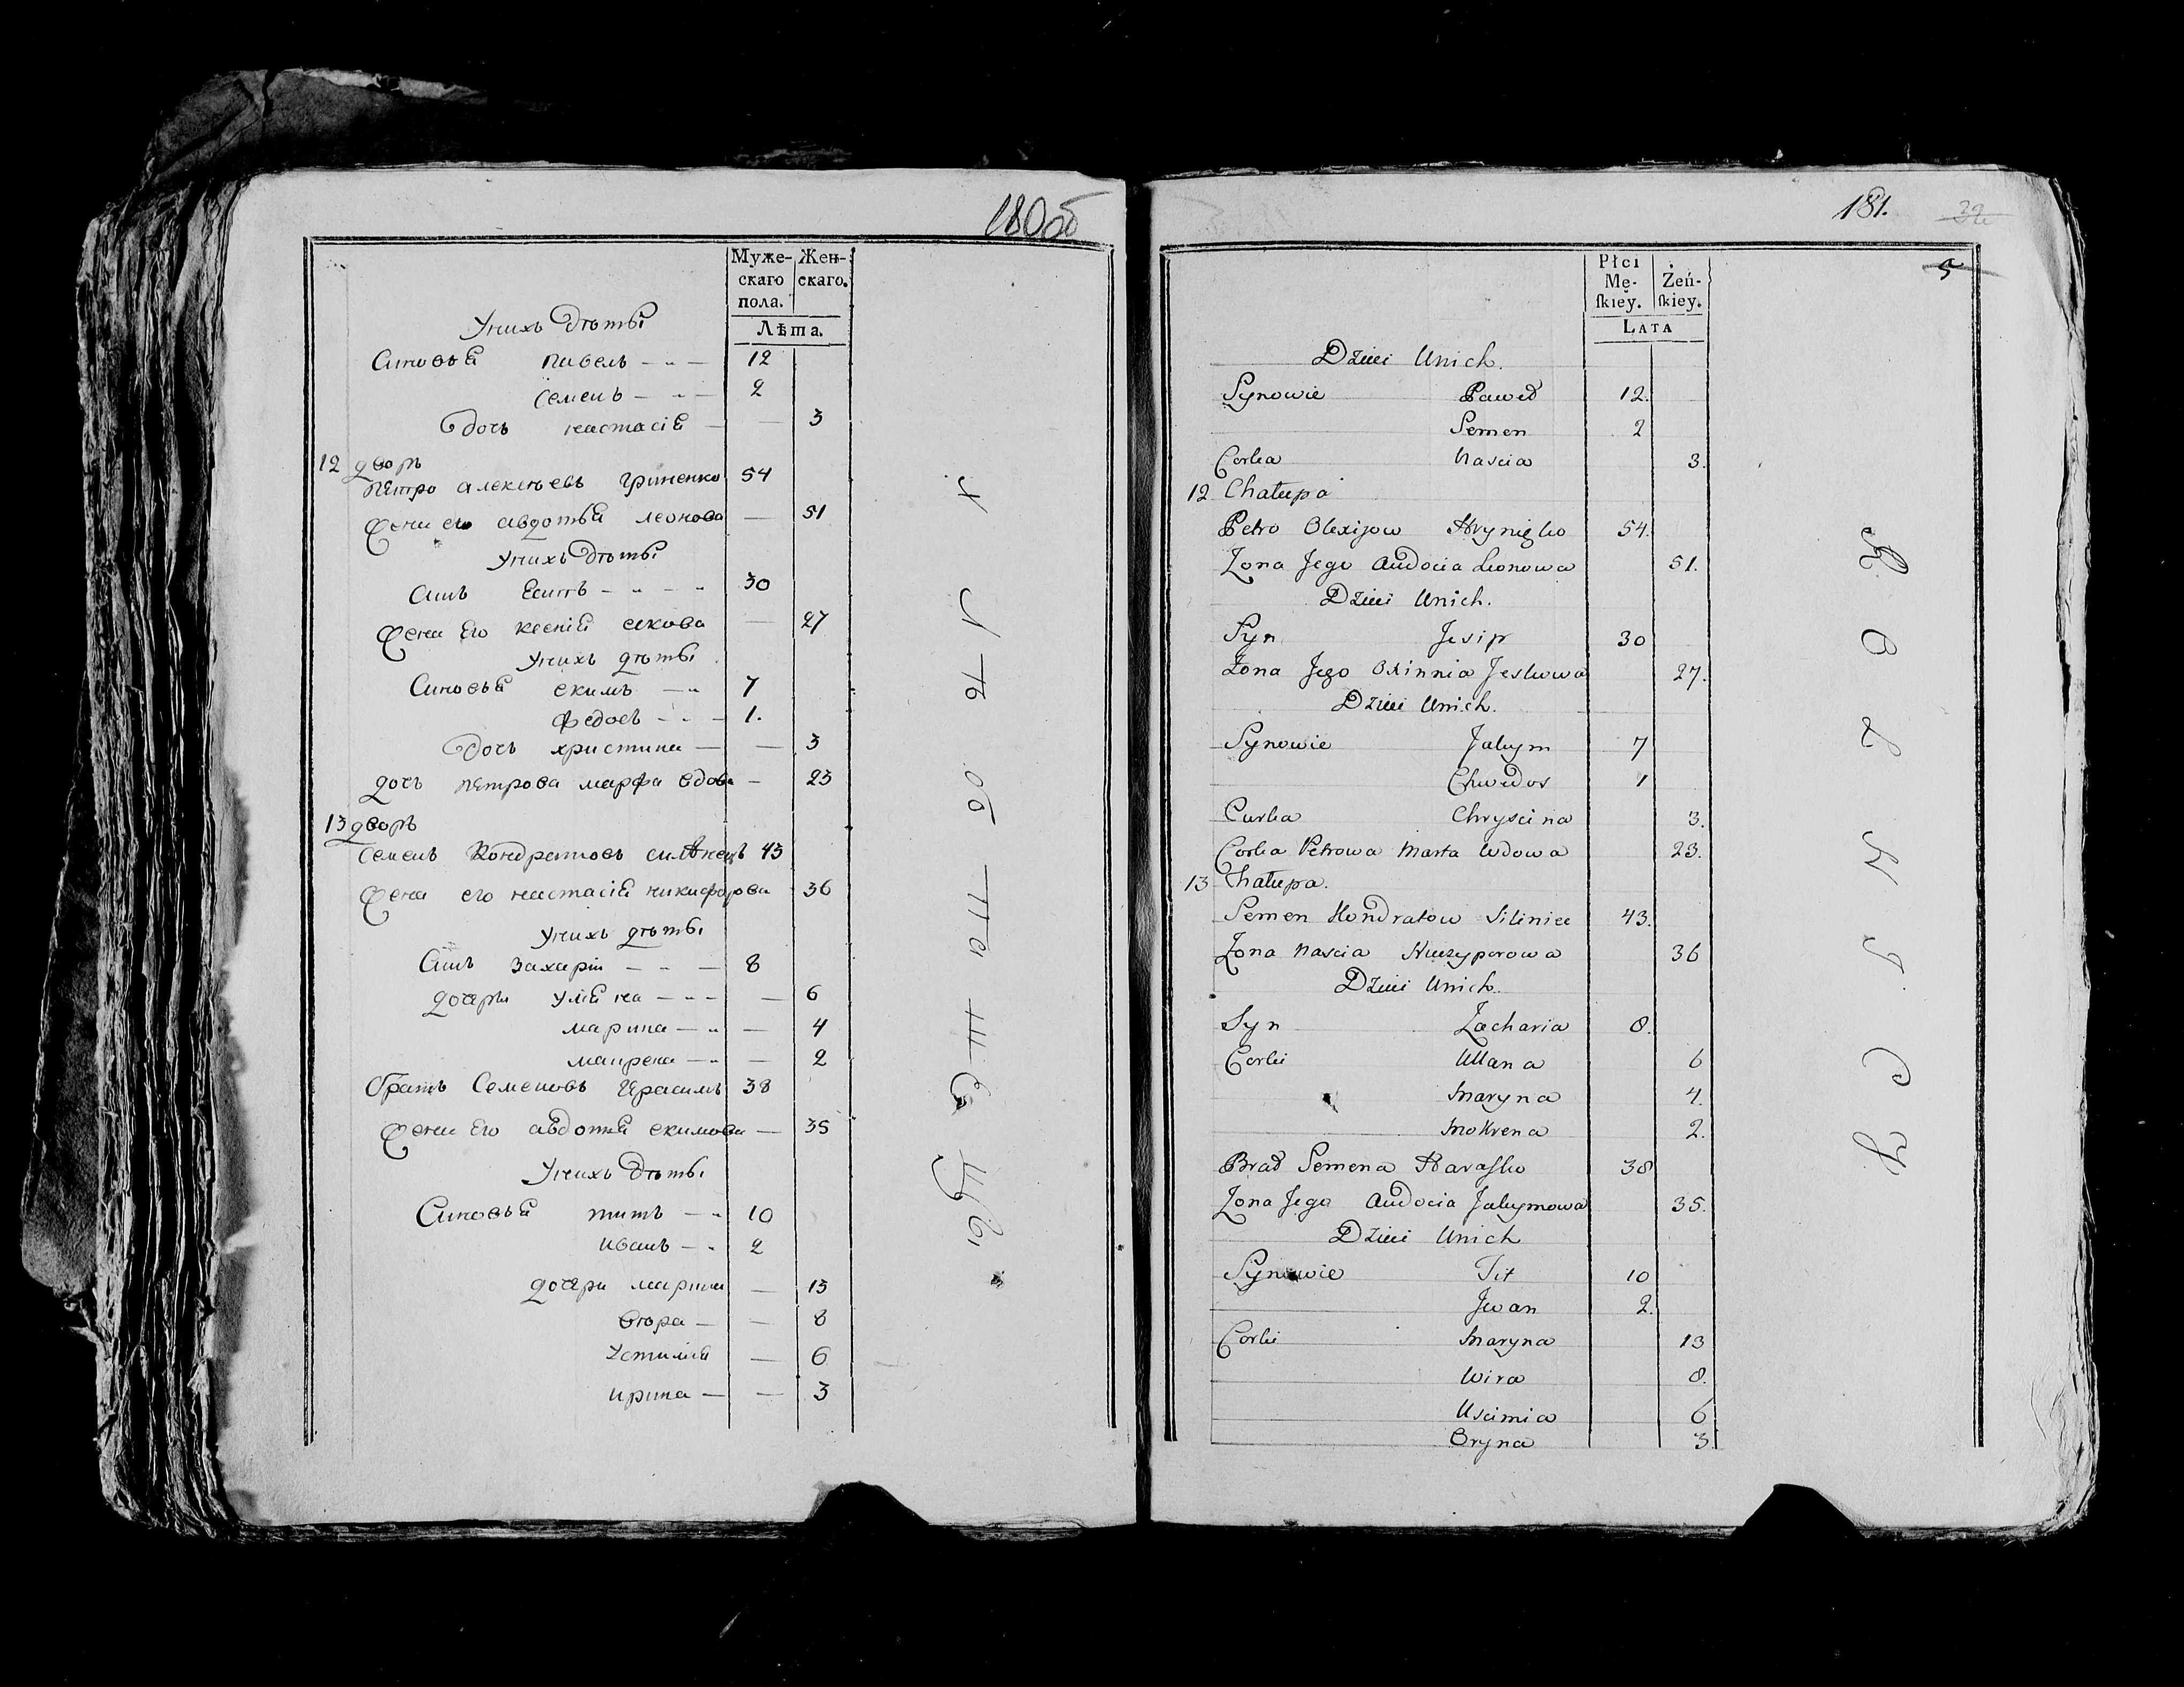 180об
Муже-
скаго
пола.
Жен-
скаго.
Лѣта.
Унихъ дѣты
Синовья павелъ 12
Семенъ 2
дочъ настасія 3
12 дворъ
Петро алексѣевъ Гриненко 54
Жена его авдотья леонова 51
Унихъ дѣты
Синъ Есипъ 30
Жена Его ксенія
Унихъ дѣты
Синовья екимъ 7
Федосъ 1.
дочъ христина 3
дочъ Петрова марфа вдова 23
13 дворъ
Семенъ Кондратовъ 43
Жена его настасія никифорова 36
Унихъ дѣты
Синъ захарій 8
дочери уляна 6
марина 4
макрена 2
братъ Семеновъ Герасимъ 38
Жена Его авдотья екимова 35
Унихъ дѣты
Синовья титъ 10
иванъ 2
дочери марина 13
вѣра 8
Устимія 6
ирина 3
181.
5
Płci
Mę-
skiey.
Żeń-
skiey.
Lata
Dzieci Unich.
Synowie Paweł 12.
Semen 2
Corka Nascia 3.
12 Chałupa
Petro Olexijow Hrynięko 54.
Zona Jego Audocia Leonowa 51.
Dzieci Unich.
Syn Jesip 30
Zona Jego Oxinnia Jeskowa 27.
Dzieci Unich.
Synowie Jakym 7
Chwedos 1
Curka Chryscina 3.
Corka Petrowa Marta Wdowa 23.
13 Chałupa.
Semen Kondratow Siliniec 43.
Zona Nascia Niczyporowa 36
Dzieci Unich.
Syn Zacharia 8.
Corki Ullana 6
Maryna 4.
Mokrena 2.
Brad Semena Harasko 38
Zona Jego Audocia Jakymowa 35.
Dzieci Unich
Synowie Tit 10
Jwan 2.
Corki Maryna 13
Wira 8.
Uscimia 6
Oryna 3.